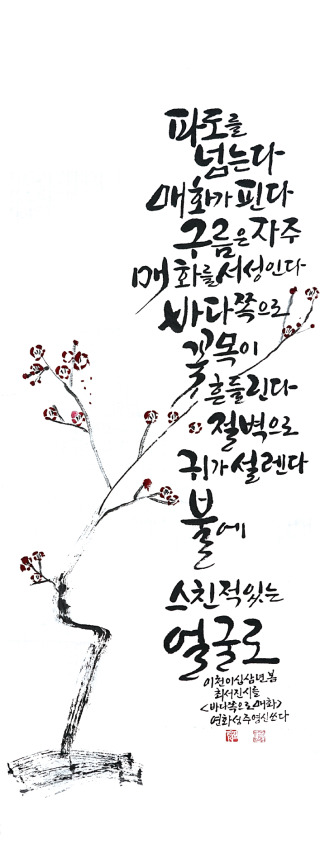 파도를
넘는다
매화가 핀다
구름은 자주
매화를 서성인다
바다쪽으로
꽃목이
흔들린다
절벽으로
귀가 설렌다
불에
스친적있는
얼굴로
이천이십삼년 봄
최서진시를
<바다쪽으로매화>
연화성주열신쓰다